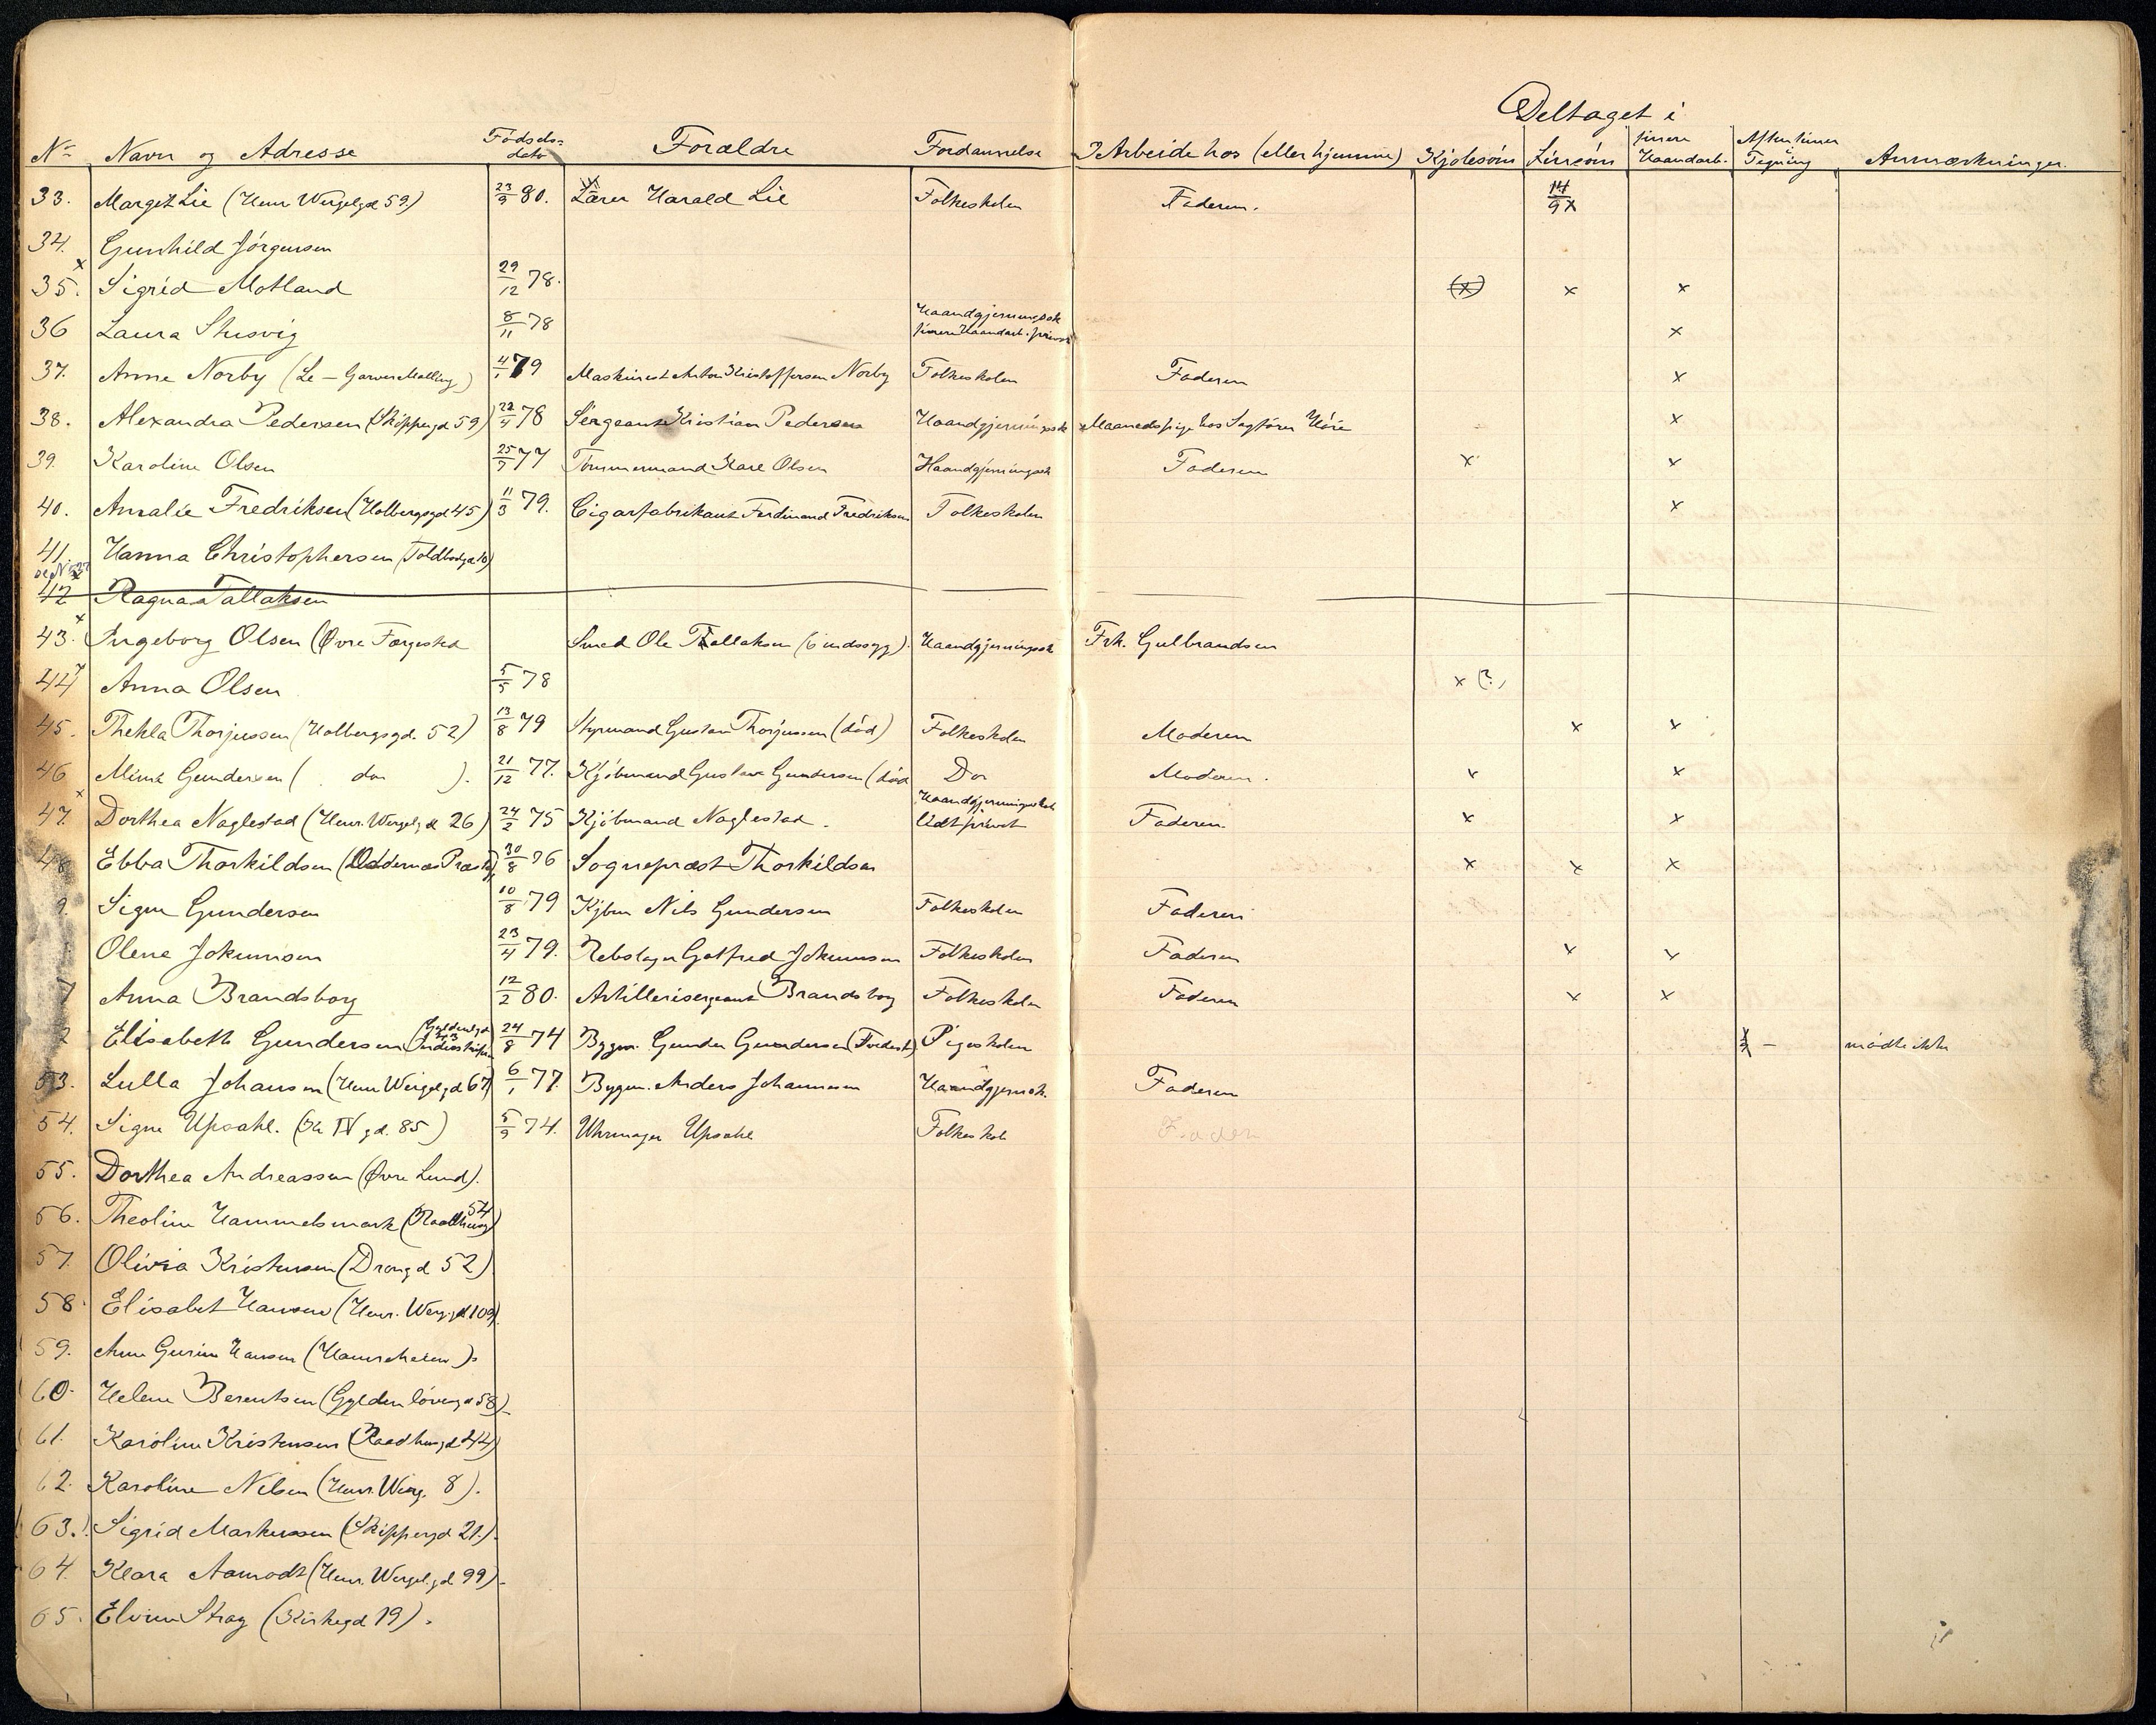 Deltaget i
No Navn og Adresse Fødsels- dato Forældre Fordannelse I Arbeide hos (eller hjemme) Kjolesøm Linsøm finere Haandarb. Aftentimer Tegning Anmærkninger.
33. Margit Lie (Henr. Wergelgd 59) 23/9 80. Lærer Harald Lie Folkeskolen Faderen. 14/9 x
34. Gunhild Jörgensen
x
35. Sigrid Motland 29/12 78. (x) x x
Haandgjerningssk
36 Laura 8/11 78 finere Haandarb. privat x
37. Anne Norby (Le - Garver Malling) 4/1 79 Maskinist Anton Kristoffersen Norby Folkeskolen Faderen x
38. Alexandra Pedersen (Skippergd 59) 22/4 78 Sergeant Kristian Pedersen Haandgjerningssk Maanedspige hos Sagfører x
39. Karoline Olsen 25/7 77 Tömmermand Karl Olsen Haandgjerningssk Faderen x x
40. Amalie Fredriksen (Holbergsgd 45) 11/3 79. Cigarfabrikant Ferdinand Fredriksen Folkeskolen x
41. Hanna Christophersen (Toldbodgd 10)
42 Ragna Tallaksen
x
43. Ingeborg Olsen (Øvre Smed Ole Tallaksen (sindssyg). Haandgjerningssk Frk. Gulbrandsen
x
44 Anna Olsen 5/5 78 x (?)
45. Thekla Thorjussen (Holbergsgd. 52) 13/8 79 Styrmand Gustav Thorjussen (död) Folkeskolen Moderen x x
46 Mina Gundersen ( do ). 21/12 77. Kjöbmand Gustav Gundersen (död Do Moderen. x x
x Haandgjerningsskole
47. Dorthea Naglestad (Henr. Wergelgd 26) 24/2 75 Kjöbmand Naglestad. lidt privat Faderen. x x
48 Ebba Thorkildsen (Oddernes Præstg) 30/8 76 Sogneprest Thorkildsen x x x
9. Signe Gundersen 10/8 79 Kjbm Nils Gundersen Folkeskolen Faderen
Olene Jokumsen 23/4 79. Rebslager Gotfred Jokumsen Folkeskolen Faderen x x
Anna Brandsborg 12/2 80. Artillerisergeant Brandsborg Folkeskolen Faderen x x
2 Elisabeth Gundersen 24/8 74 Bygm. Gunder Gundersen Pigeskolen x - mødte ikke
53. Lulla Johansen (Henr Wergelgd 67) 6/1 77. Bygm. Anders Johannesen Haandgjernsk. Faderen
54. Signe Upsahl. (Kr IV gd. 85) 5/9 74. Uhrmager Upsahl Folkeskole Faderen
55. Dorthea Andreassen (Øvre Lund).
56. Theoline Hammelsmark (Raadhusg 54)
57. Olivia Kristensen (Drongd 52)
58. Elisabet Hansen (Henr. Werg.gd 109)
59. Anne Gurine Hansen
60. Helene Berentsen (Gyldenlövesgd 58)
61. Karoline Kristensen (Raadhusgd 44)
62. Karoline Nilsen (Henr. Werg. 8).
63. Sigrid Markussen (Skippergd 21.).
64. Klara Aamodt (Henr. Wergel.gd 99)
65. Elvine Stray (Kirkegd 19).